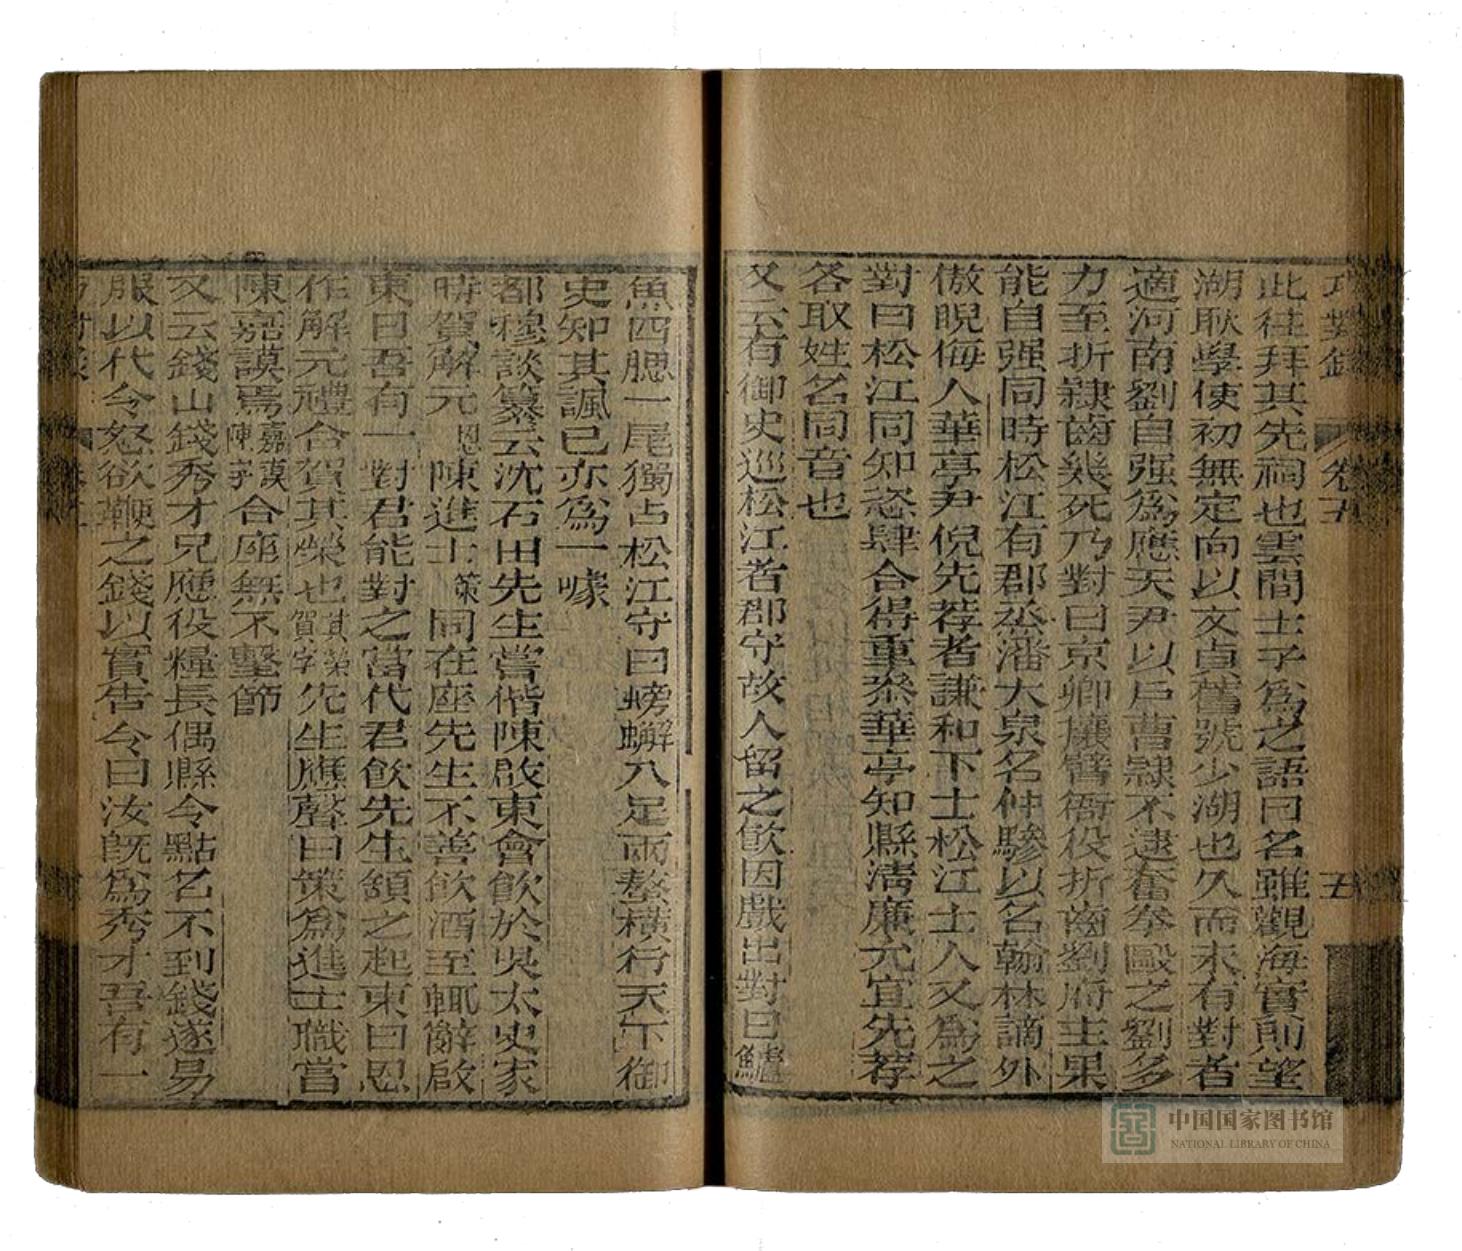 巧對錄
卷五
五
此往拜其先祠也雲間士子爲之語曰名雖觀海實則望
湖耿學使初無定向以文貞舊號少湖也久而未有對者
適河南劉自强爲應天尹以戶曹隸不逮奮拳毆之劉多
力至折隸齒幾死乃對曰京卿攘臂衙役折齒劉府主果
能自强同時松江有郡丞潘大泉名仲驂以名翰林謫外
傲睨侮人華亭尹倪先荐者謙和下士松江士人又爲之
對曰松江同知恣肆合得重參華亭知縣淸廉允宜先荐
各取姓名同音也
又云有御史巡松江者郡守故人留之飮因戲出對曰鱸
魚四腮一尾獨占松江守曰螃蠏八足兩螯橫行天下御
史知其諷已亦爲一噱
都穆談纂云沈石田先生嘗偕陳啟東會飮於吳太史家
時賀解元恩陳進士策同在座先生不善飮酒至輒辭啟
東曰吾有一對君能對之當代君飮先生頷之起東曰恩
作解元禮合賀其榮也其榮賀字先生應聲曰策爲進士職當
陳嘉謨焉嘉謨陳字合座無不擊節
又云錢山錢秀才兄應役糧長偶縣令點名不到錢遂易
服以代令怒欲鞭之錢以實告令曰汝旣爲秀才吾有一
中国国家图书馆
NATIONAL LIBRARY OF CHINA